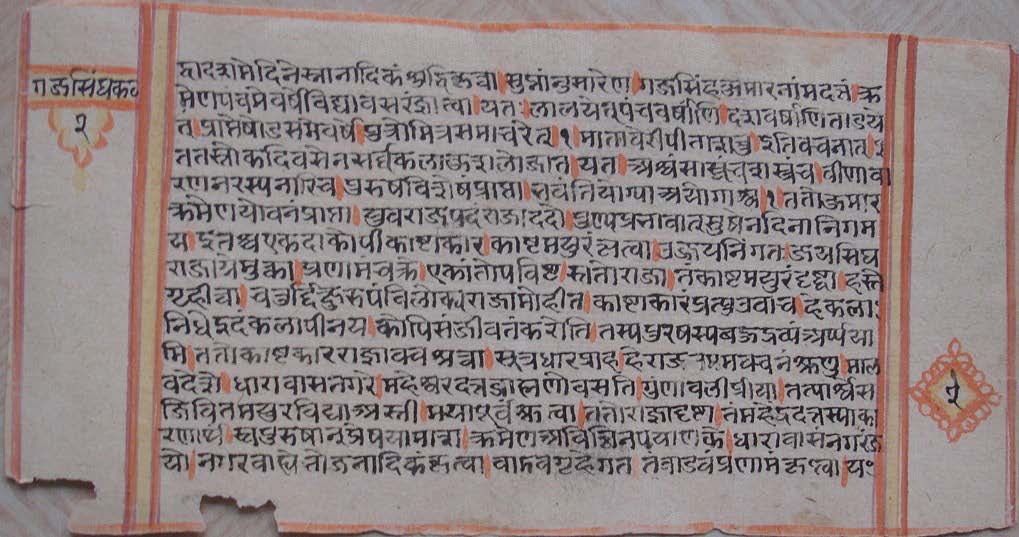 गजसिंघकव
२
द्वादशमेदिने स्नानादिकं शुद्धिकृत्वा सुप्नांनुसारेण गजसिंहकुमारनांमदत्तं क्र
मेणपंचमेवर्षे विद्यावसरंज्ञात्वा यतः लालयेत्पंचवर्षाणि दशवर्षाणिताडये
त् प्राप्तेषोडसमेवर्षे पुत्रोमित्रसमाचरेत् १ मातावैरीपीताशत्रु इतिवचनात्
ततस्तोकदिवसेन कलाकुशलोजात यत अश्वंसास्त्रंचशस्त्रंच वीणावा
रणनरस्यनारिच पुरुषविशेषप्राप्ता भवंतियोग्या अयोगाश्च १ ततोकुमार
क्रमेणयोवनंप्राप्ता युवराजपदंराजाददौ पुण्यप्रभावात्सुषेनदिनानिगम
य इतश्चएकदाकोपीकाष्टकार काष्टमयुरंलात्वा उजयनिंगत जयसिंघ
राजायेमुक्ता प्रणामंचक्रे एकांतोपविष्ट राजा तकाष्टमयुरंदृष्टा हस्ते
गृहीत्वा रुपंविलोक्य राजामोहीत काष्टाकारंप्रत्युउवाच हेकला
निधेइदंकलापीनय कोपिसंजीवतंकरोति तस्यपुरषस्यबहुद्रव्यंअर्प्पया
मि ततोकाष्टकारराज्ञावचश्रुत्वा सुत्रधारप्राह हेराज वचनंश्रुणु माल
वदेशे धारावासनगरे महेश्वरदत्तब्राह्मणोवसति गुणावलीप्रीया तत्पार्श्वेस
जिवितमयुरविद्याअस्ती मयापूर्वंश्रुत्वा ततोराज्ञाहृष्टा तमहेश्वरदत्तस्याका
रणार्थं स्वपुरुषानप्रेषयामास क्रमेणअविछिनप्रयाणकै धारावासनगरंज
यो नगरबाह्येभोजनादिकंकृत्वा वाडवगृहेगत तंवाडवंप्रणामंकृत्वा यः
२